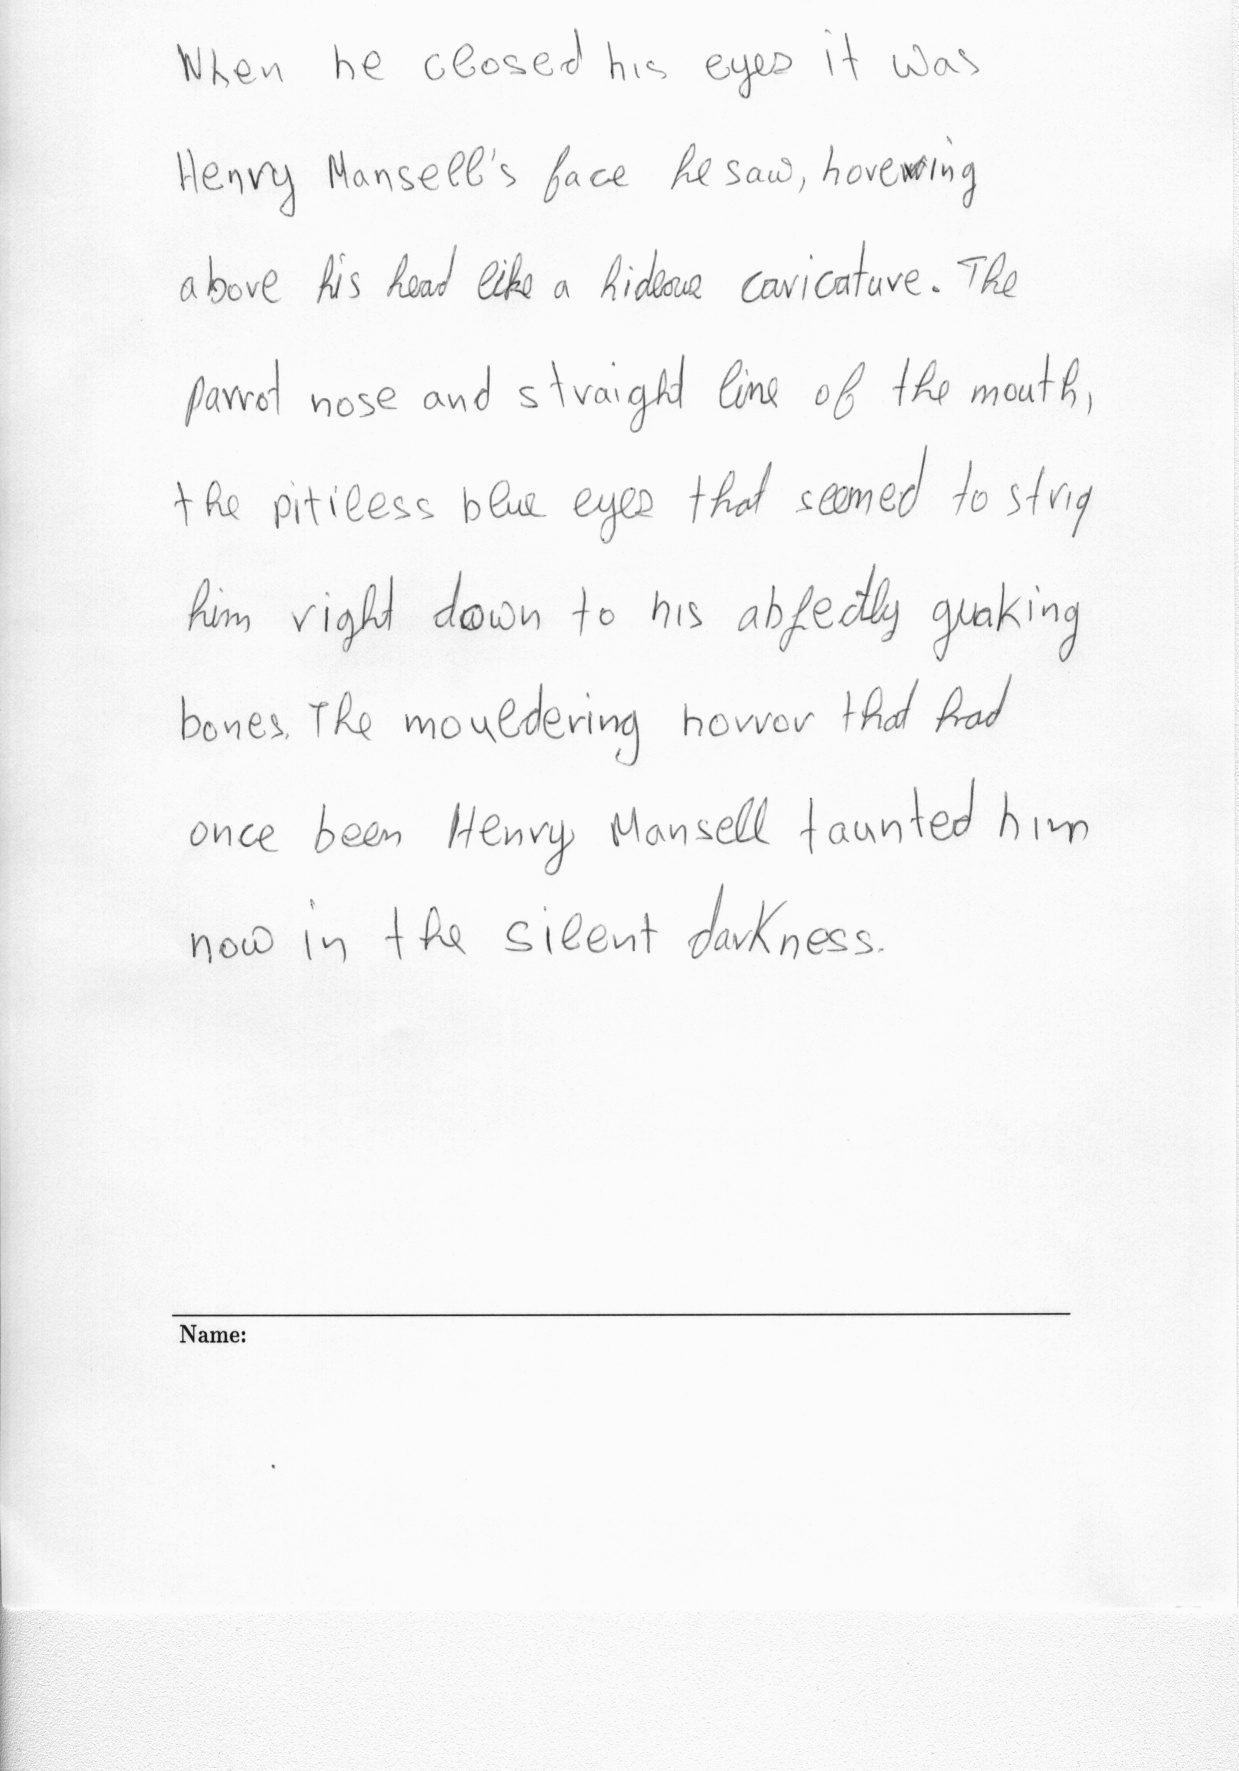 When he closed his eyes it was
Henry Mansell's face he saw, hovering
above his head like a hideous caricature. The
parrot nose and straight line of the mouth,
the pitiless blue eyes that seemed to strip
him right down to his abjectly quaking
bones. The mouldering horror that had
once been Henry Mansell taunted him
now in the silent darkness.
Name: